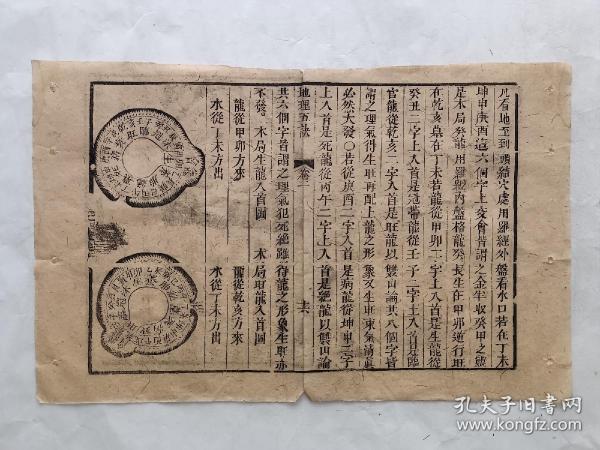 凡看地至到頭結穴處用羅經外盤看水口若在丁未
坤申庚酉這六個字上交會皆謂之金羊收癸甲之靈
是木局癸龍用羅經內盤格龍癸長生在甲卯逆行旺
在乾亥墓在丁未若龍從甲卯二字上入首是生龍從
癸丑二字上入首是冠帶龍從壬子二字上入首是臨
官龍從乾亥二字入首是旺龍以雙山論共八個字皆
謂之理氣得生旺再配上龍之形象又生旺東氣清真
必然大發〇若從庚酉二字入首是病龍從坤申二字
上入首是死龍從丙午二字上入首是絕龍以雙山論
地理五訣
卷二
十六
共六個字皆謂之理氣犯死絕雖得龍之形象生旺亦
不發
木局生龍入首圖
龍從甲卯方來
水從丁未方出
木局旺龍入首圖
龍從乾亥方來
水從丁未方出
孔夫子旧书网
www.kongfz.com